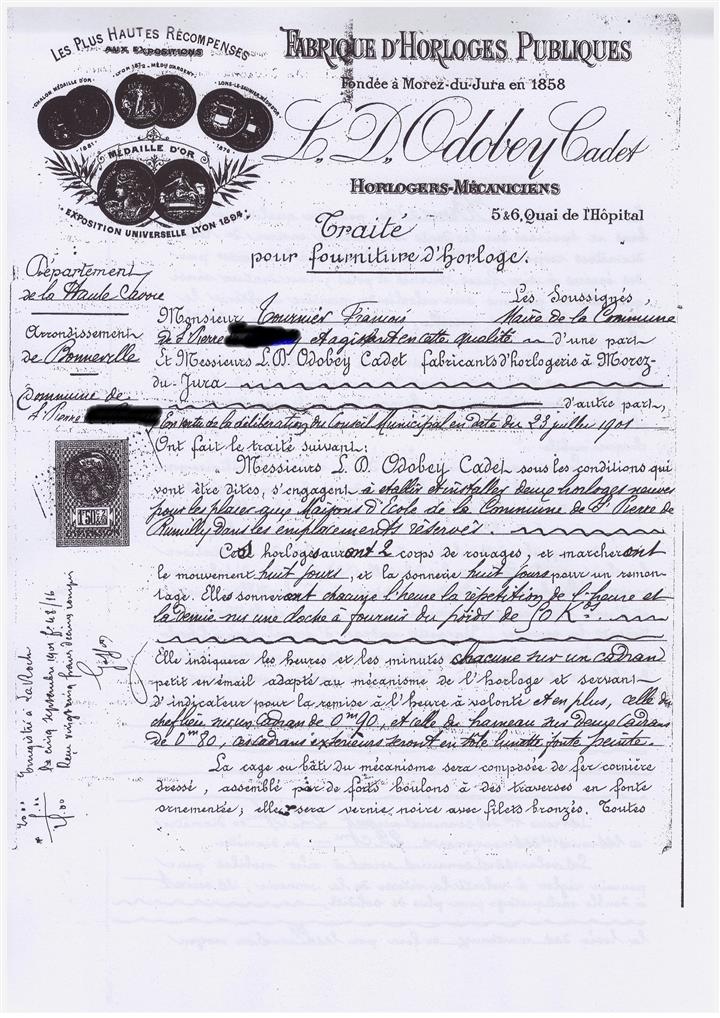 LES PLUS HAUTES RÉCOMPENSES
AUX EXPOSITIONS
CHALON MÉDAILLE D'OR
1881
LYON 1872 - MÉD. D'ARGENT
LONS-LE-SAUNIER MÉD. D'OR
1876
MÉDAILLE D'OR
EXPOSITION UNIVERSELLE LYON 1894
FABRIQUE D'HORLOGES PUBLIQUES
Fondée à Morez-du-Jura en 1858
L. D. Odobey Cadet
HORLOGERS-MÉCANICIENS
5 & 6, Quai de l'Hôpital
Traité
pour fourniture d'horloge.
Département
de la Haute Savoie
Arrondissement
de Bonneville
Commune de
St Pierre
Les Soussignés,
Monsieur Tournier François Maire de la Commune
de St Pierre et agissant en cette qualité d'une part
Et Messieurs L. D. Odobey Cadet fabricants d'horlogerie à Morez-
du-Jura
d'autre part,
En vertu de la délibération du Conseil Municipal en date du 23 juillet 1901
Ont fait le traité suivant:
Messieurs L. D. Odobey Cadet sous les conditions qui
vont être dites, s'engagent à établir et installer deux horloges neuves
pour les placer aux Maisons d'Ecole de la Commune de St Pierre de
Rumilly dans les emplacements réservés.
Ces horloges auront 2 corps de rouages, et marcheront
le mouvement huit jours, et la sonnerie huit jours pour un remon-
tage. Elles sonneront chacune l'heure la répétition de l'heure et
la demie sur une cloche à fournir du poids de 50 Kos
Elle indiquera les heures et les minutes chacune sur un cadran
petit en émail adapté au mécanisme de l'horloge et servant
d'indicateur pour la remise à l'heure à volonté et en plus, celle du
chef lieu sur un cadran de 0m90, et celle du hameau sur deux cadrans
de 0m80, ces cadrans extérieurs seront en tôle lunette fonte peinte.
La cage ou bâti du mécanisme sera composée de fer cornière
dressé, assemblé par de forts boulons à des traverses en fonte
ornementée; elle sera vernie noire avec filets bronzés. Toutes
1F50
Enregistré à La Roche
le cinq septembre 1901 fo 48 c 16